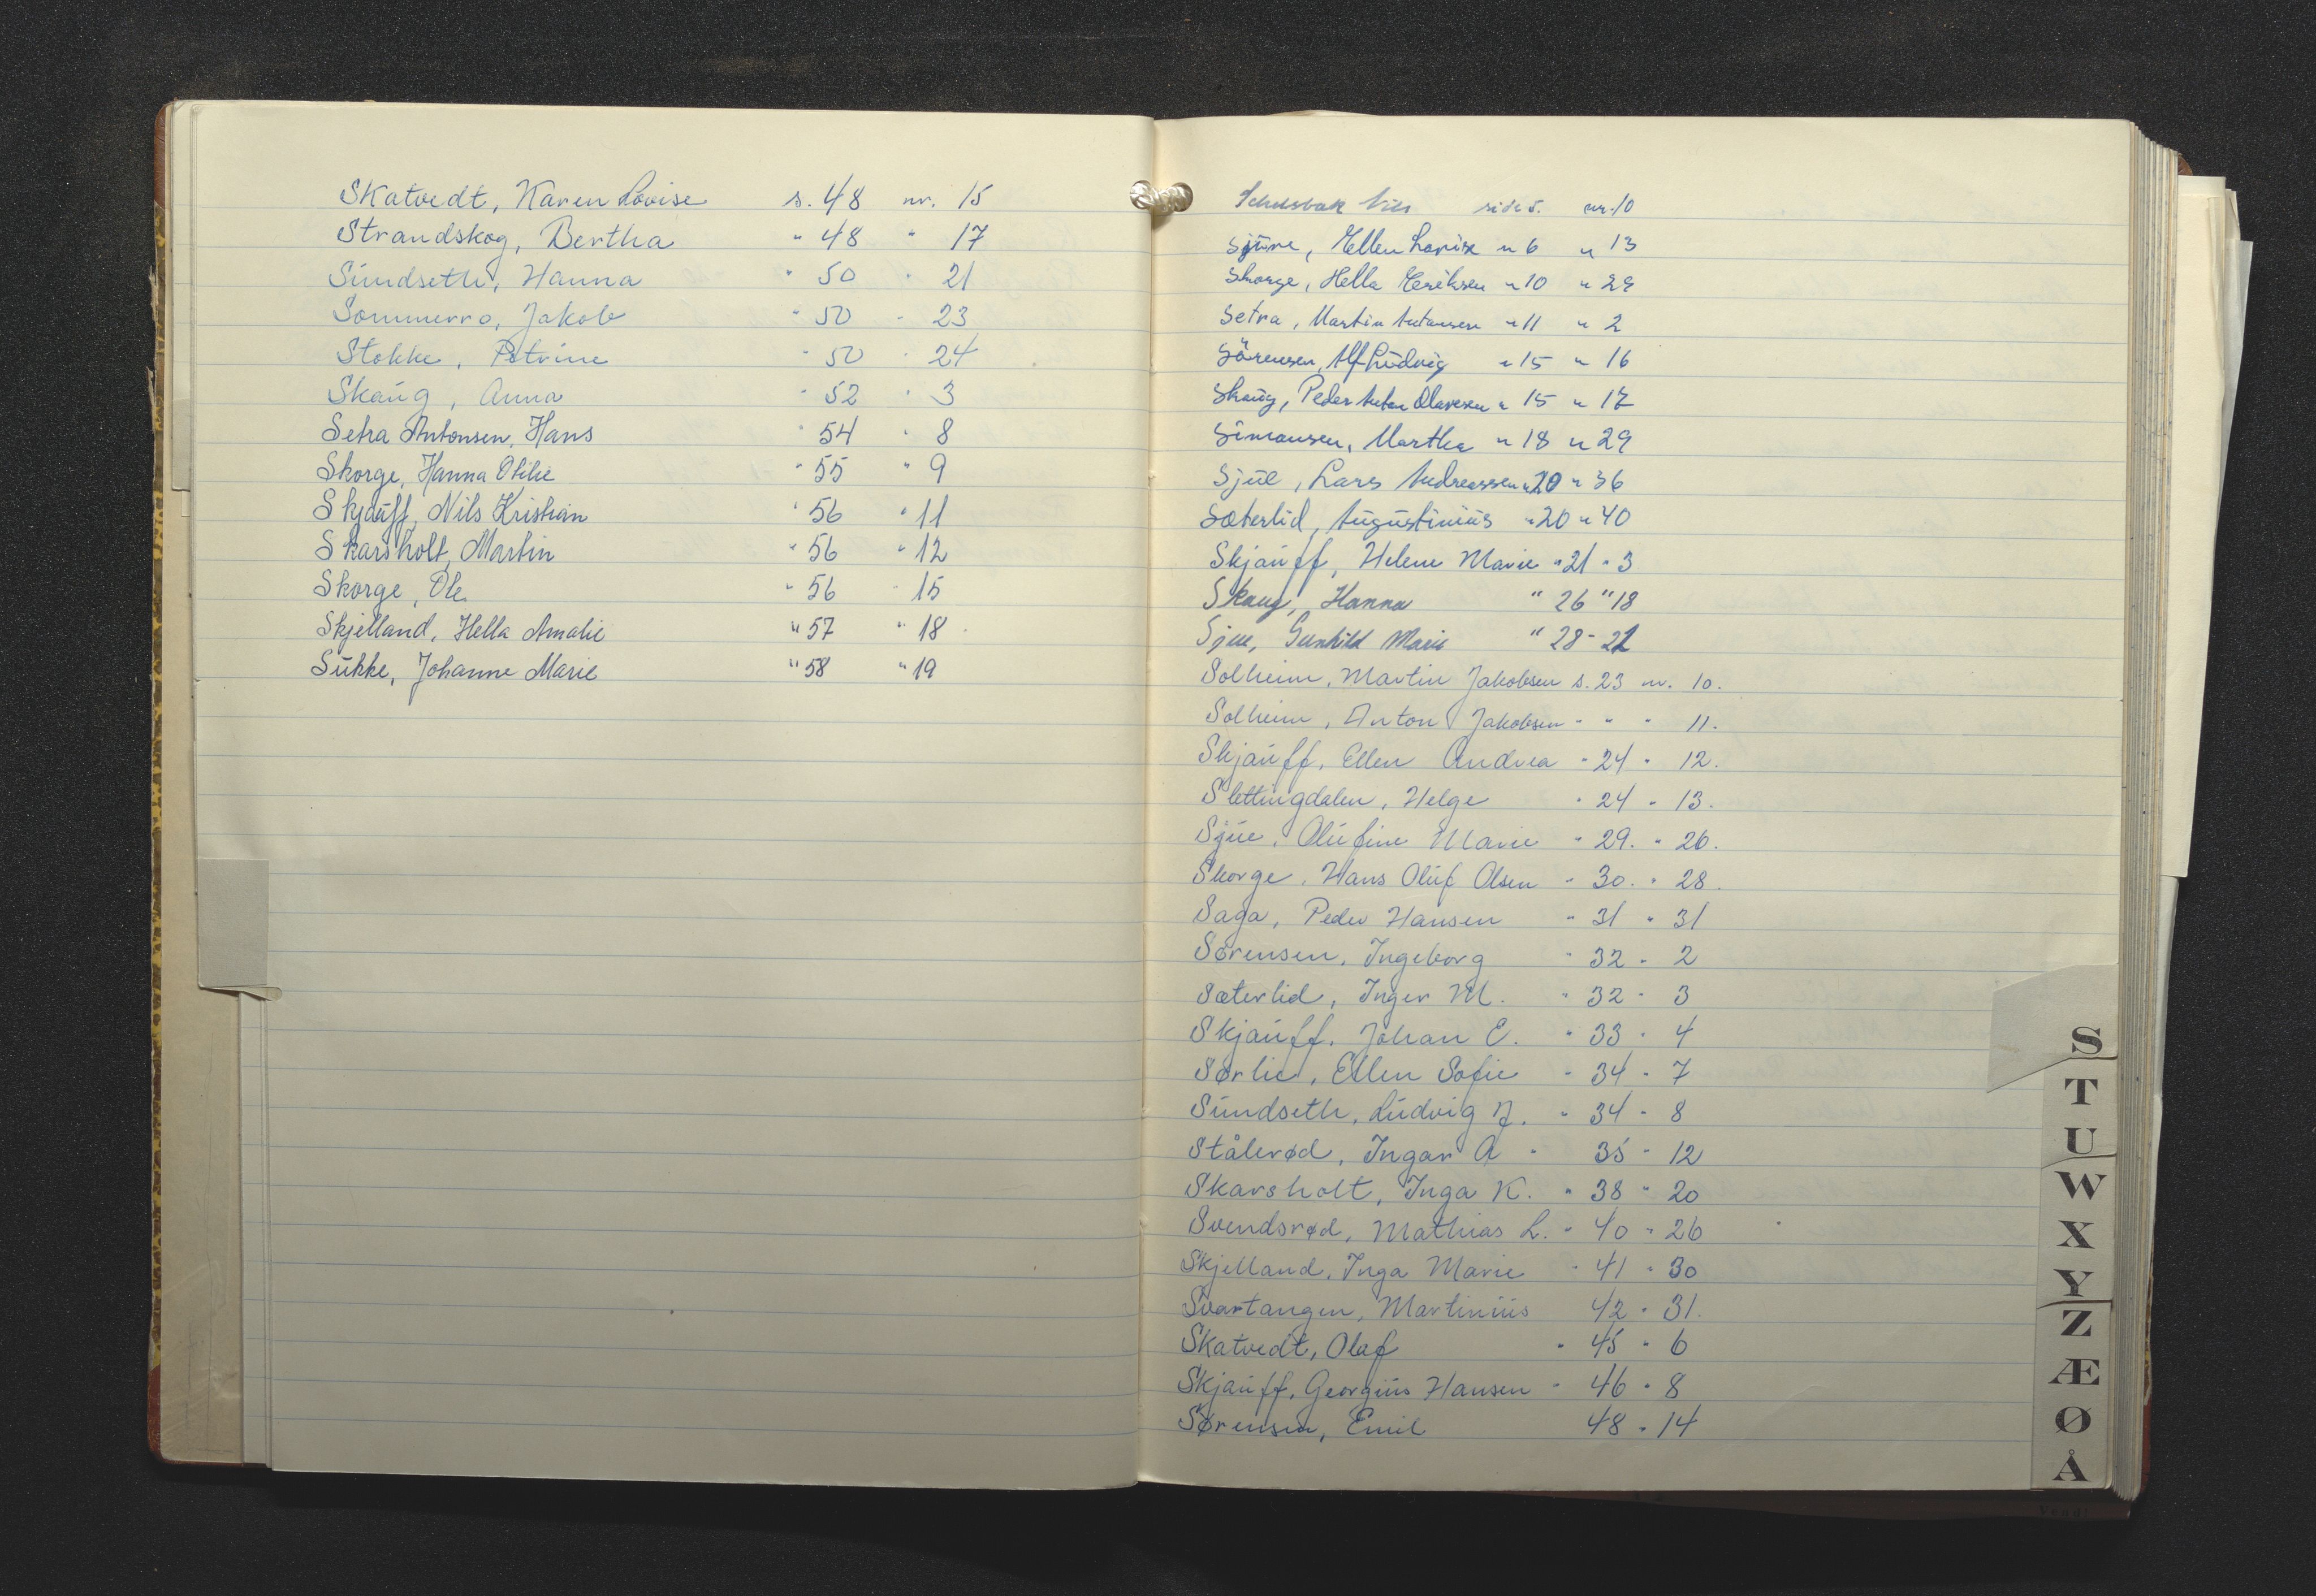 Skatvedt, Karen Lovise s. 48 nr. 15
Strandskog, Bertha " 48 " 17
Sŭndseth, Hanna " 50 " 21
Sommerro, Jakob " 50 " 23
Stokke, Petrine " 50 " 24
Skaŭg, Anna " 52 " 3
Setra Antonsen, Hans " 54 " 8
Skorge, Hanna Otilie " 55 " 9
Skjaŭff, Nils Kristian " 56 " 11
Skarsholt, Martin " 56 " 12
Skorge, Ole " 56 " 15
Skjelland, Hella Amalie " 57 " 18
Sŭkke, Johanne Marie " 58 " 19
Nils side 5. nr. 10
Sjŭre, Ellen Lovise " 6 " 13
Skorge, Hella Eriksen " 10 " 29
Setra, Martin Antonsen " 11 " 2
Sörensen, Alf Lŭdvig " 15 " 16
Skaŭg, Peder Anton Olavesen " 15 " 17
Simonsen, Martha " 18 " 29
Sjŭe, Lars Andreassen " 20 " 36
Sæterlid, Aŭgŭstiniŭs " 20 " 40
Skjaŭff, Helene Marie " 21 " 3
Skaug, Hanna " 26 " 18
Sjue, Gunhild Marie " 28 - 21
Solheim, Martin Jakobsen s. 23 nr. 10.
Solheim, Anton Jakobsen " " " 11.
Skjaŭff, Ellen Andrea " 24 " 12.
Slettingdalen, Helge " 24 " 13.
Sjŭe, Olŭfine Marie " 29. " 26.
Skorge, Hans Olŭf Olsen " 30. " 28.
Saga, Peder Hansen " 31 " 31
Sörensen, Ingeborg " 32 " 2
Sæterlid, Inger M. " 32 " 3
Skjaŭff, Johan E. " 33 " 4
Sørlie, Ellen Sofie " 34 " 7
Sŭndseth, Lŭdvig J. " 34 " 8
Stålerød, Ingar A " 35 " 12
Skarsholt, Inga K. " 38 " 20
Svendsrød, Mathias L. " 40 " 26
Skjelland, Inga Marie " 41 " 30
Svartangen, Martiniŭs 42 " 31.
Skatvedt, Olaf " 45 " 6
Skjaŭff, Georgiŭs Hansen " 46 " 8
Sørensen, Emil 48 " 14
S
T
U
W
X
Y
Z
Æ
Ø
Å